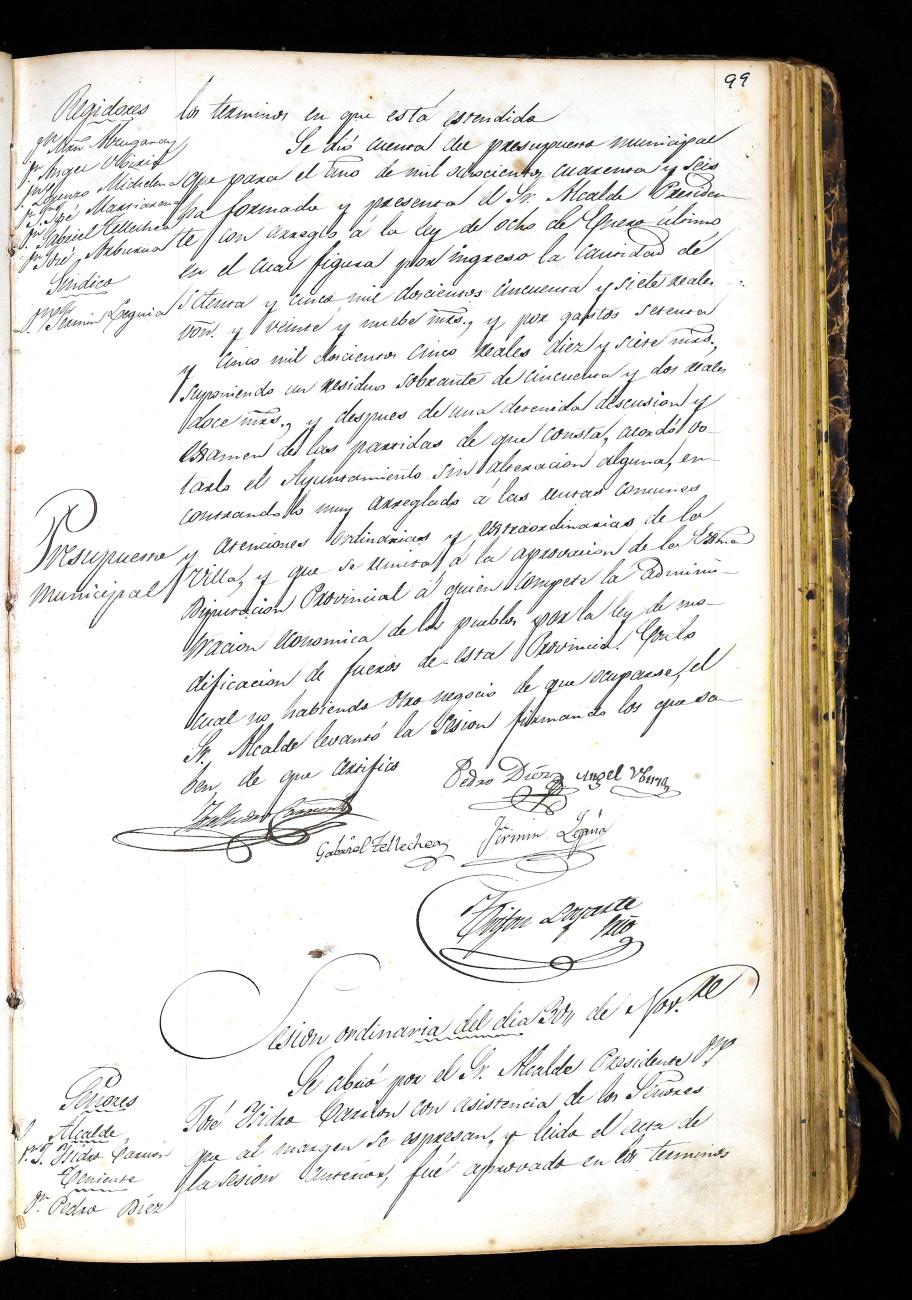 99
Regidores
Dn. Angel Viziria
Dn. Lorenzo Michelena
Dn. José Martiarena
Dn. Gabriel Tellechea
Dn. José Arburua
Sindico
Dn. Fermin Leguia
los terminos en que está estendida
Se dió cuenta del presupuesto municipal
que para el año de mil ochocientos cuarenta y seis
ha formado y presenta el Sr. Alcalde Presiden-
te con arreglo á la ley de ocho de Enero ultimo
en el cual figura por ingreso la cantidad de
setenta y cinco mil doscientos cincuenta y siete reales
von. y veinte y nuebe mrs., y por gastos setenta
y cinco mil doscientos cinco reales diez y siete mrs.,
suponiendo un residuo sobrante de cincuenta y dos reales
doce mrs., y despues de una detenida discusion y
examen de las partidas de que consta, acordó vo-
tarlo el Ayuntamiento sin alteracion alguna, en-
contrandolo muy arreglado á las rentas comunes
Presupuesto
municipal
y atenciones ordinarias y extraordinarias de la
Villa, y que se remita á la aprovacion de la Exma
Diputacion Provincial á quien compete la adminis-
tracion economica de los pueblos por la ley de mo-
dificacion de fueros de esta Provincia. Con lo
cual no habiendo otro negocio de que ocuparse, el
Sr. Alcalde levantó la Sesion firmando los que sa-
ben, de que certifico
Pedro Diez
Angel
Gabriel Tellechea
Fermin Leguia
Sesion ordinaria del dia 30 de Nov.re
Se abrió por el Sr. Alcalde Presidente Dn.
José Ysidro Carrion con asistencia de los Señores
que al margen se espresan, y leido el acta de
la Sesion anterior, fué aprovado en los terminos
Señores
Alcalde
Dn. J. Ysidro Carrion
Teniente
Dn. Pedro Diez